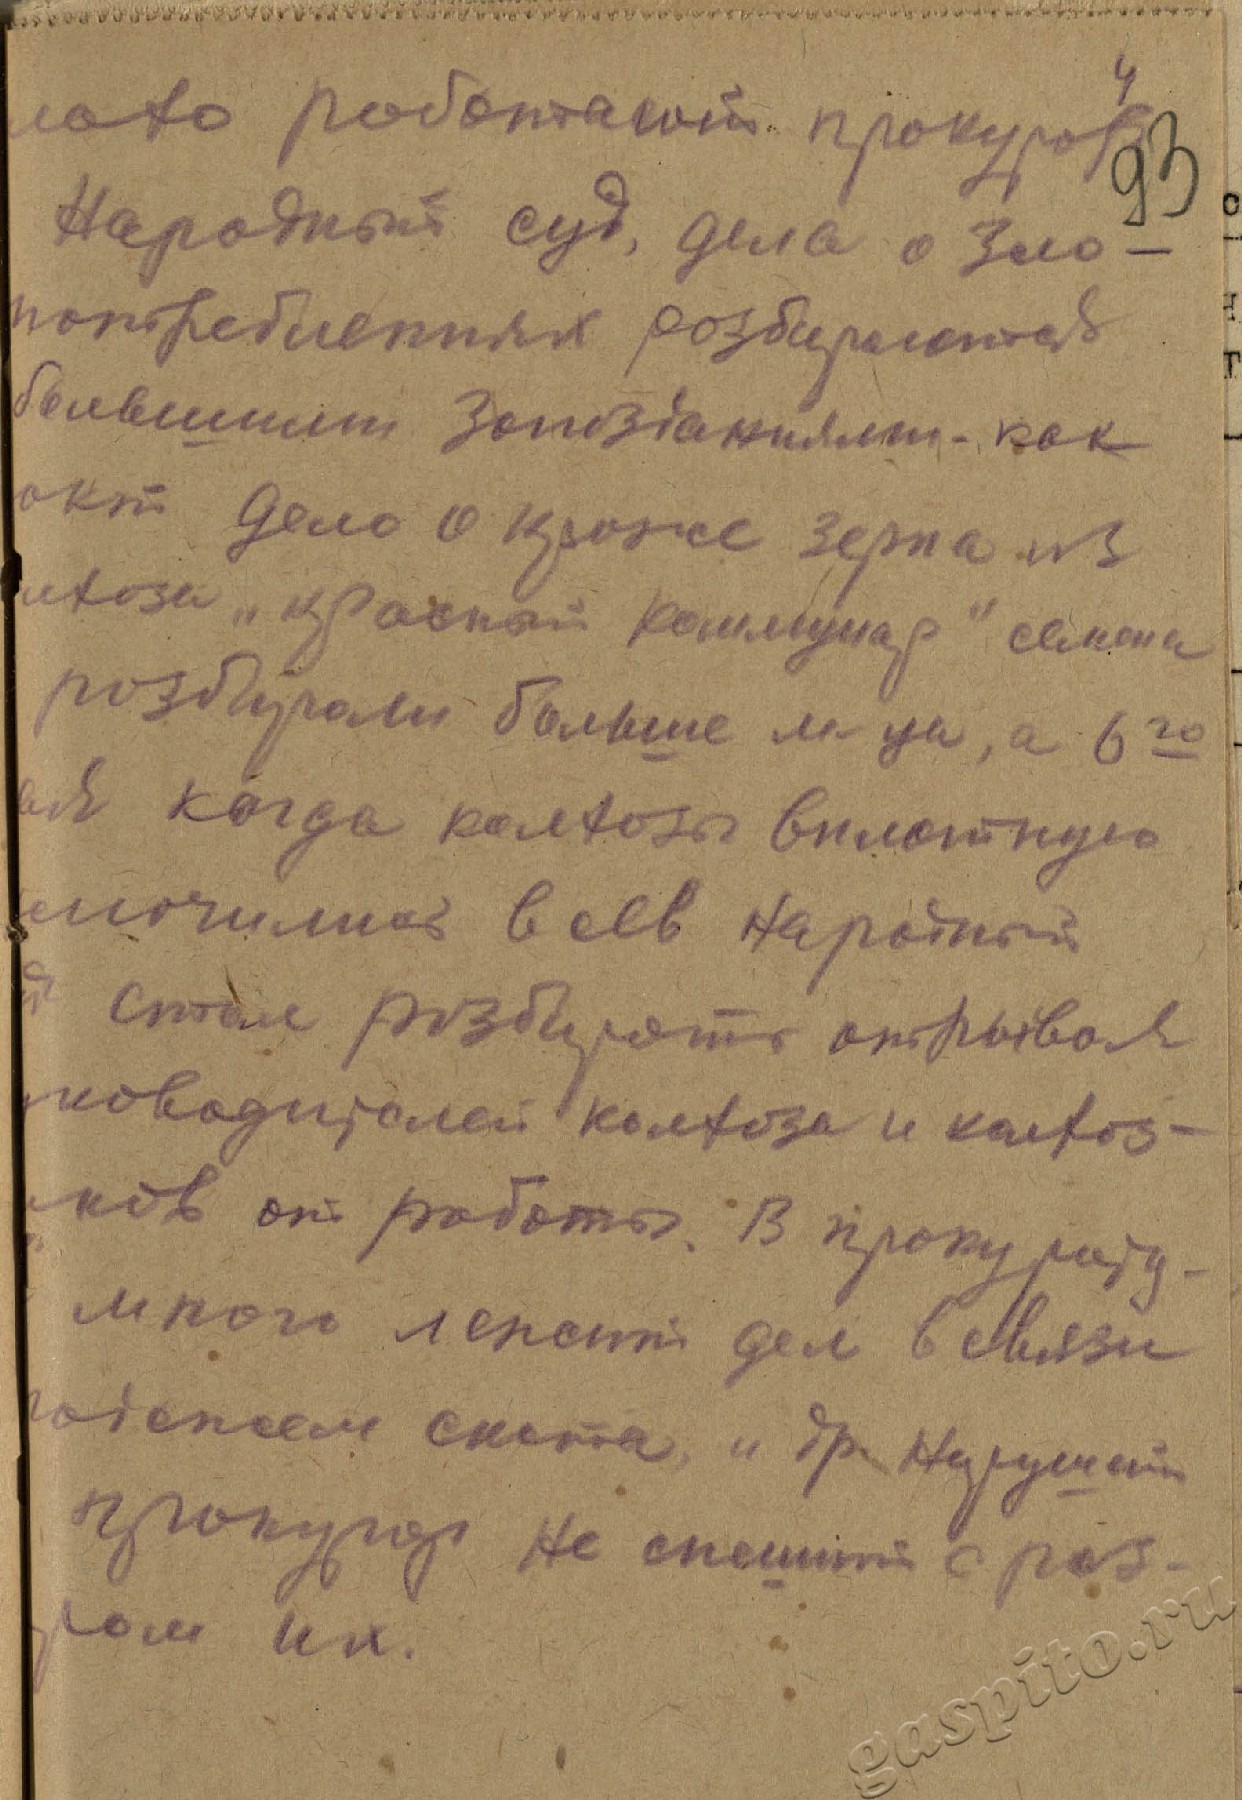 4
лохо работают прокурор
93
Народный суд, дела о зло-
потреблениях розбираются
большими запозданиями - как
акт дело о краже зерна из
лхоза "Красный Коммунар" семена
розбирали больше м-ца, а 6го
ая когда колхозы вплотную
лючились в сев Народный
д стал розбирать отрывая
ководителей колхоза и колхоз-
иков от работы. В прокурату-
много лежит дел в связи
падежем скота, и др. Нарушений
прокурор не спешит с роз-
ром их.
gaspito.ru